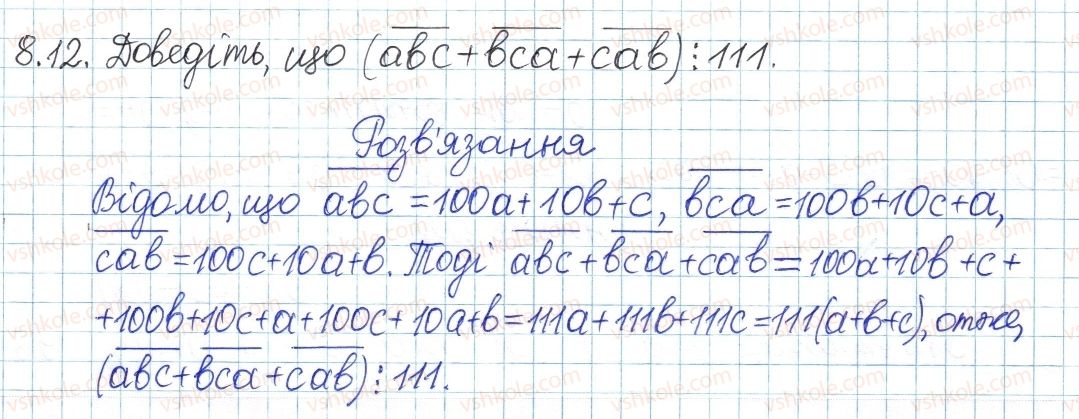 8.12. Доведіть, що (abc + bca + cab) ⋮ 111.
Розв'язання
Відомо, що abc = 100a + 10b + c, bca = 100b + 10c + a,
cab = 100c + 10a + b. Тоді abc + bca + cab = 100a + 10b + c +
+ 100b + 10c + a + 100c + 10a + b = 111a + 111b + 111c = 111(a + b + c), отже,
(abc + bca + cab) ⋮ 111.